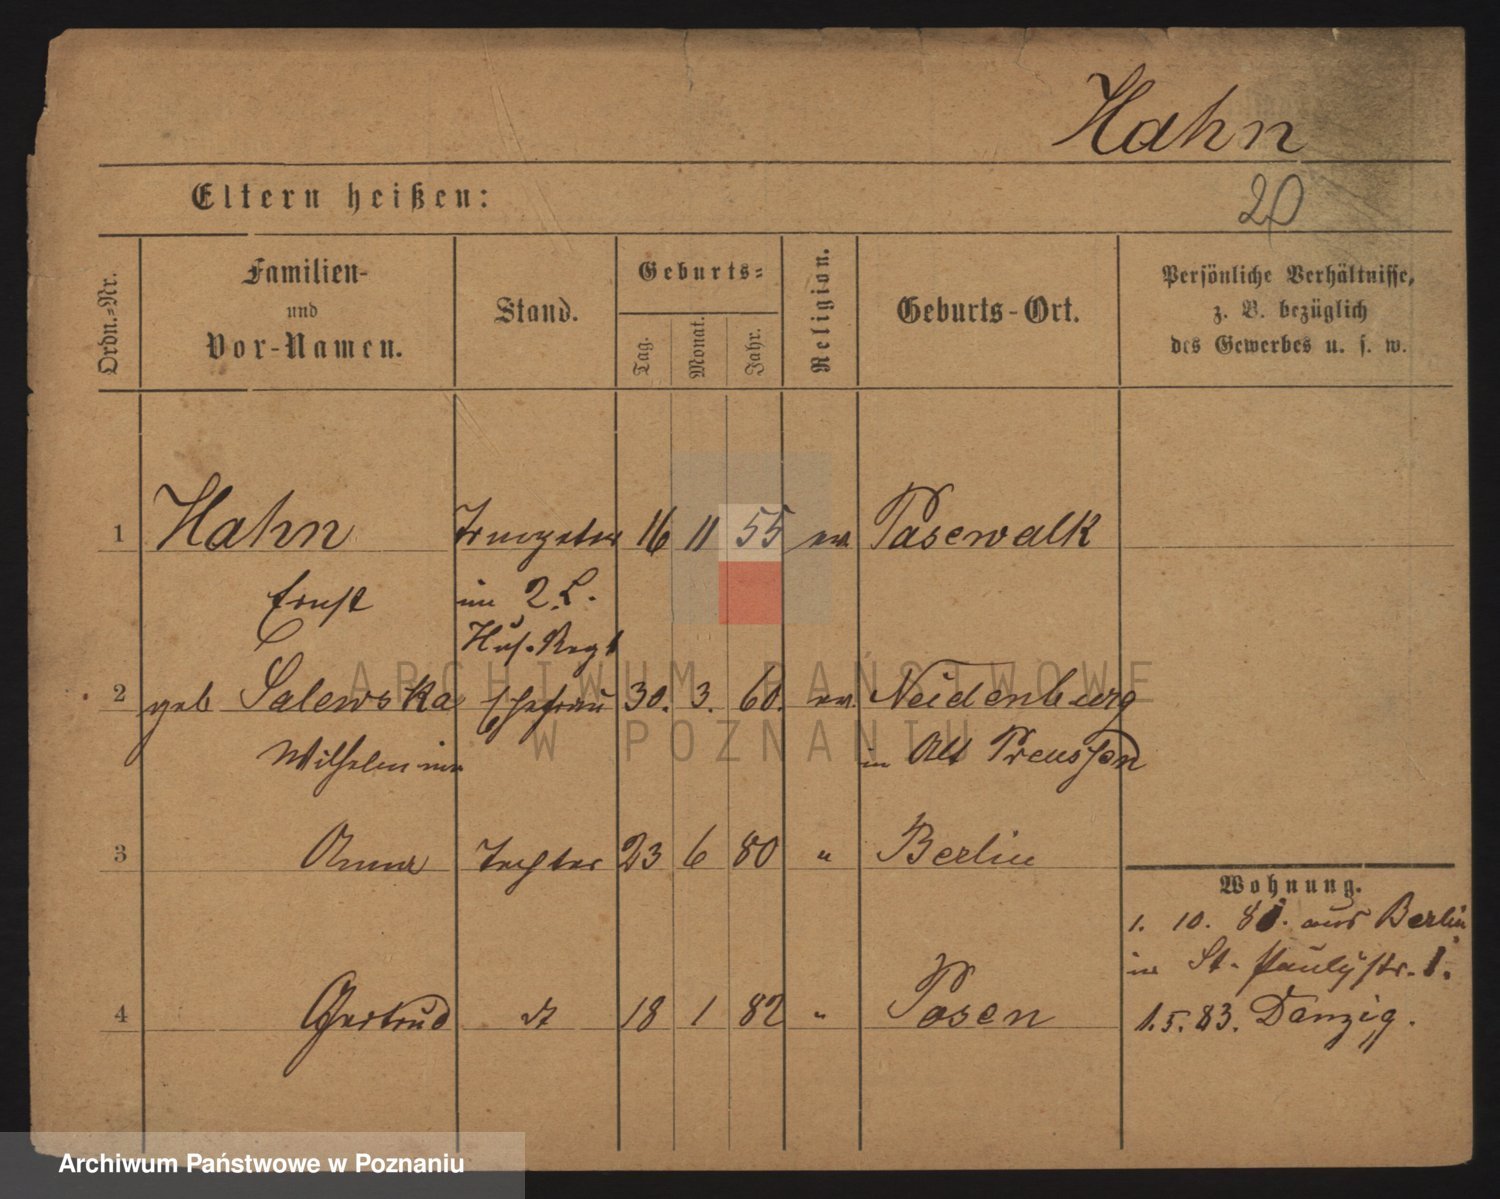 Hahn
20
Eltern heißen:
Ordn.=Nr.
Familien-
und
Vor-Namen.
Stand.
Geburts=
Tag.
Monat.
Jahr.
Religion.
Geburts-Ort.
Persönliche Verhältnisse,
z. B. bezüglich
des Gewerbes u. s. w.
1 Hahn Trompeter 16 11 55 ev. Pasewalk
Ernst im 2. L.
Hus. Regt
2 geb Salewska Ehefrau 30. 3. 60. ev. Neidenburg
Wilhelmine in Alt Preussen
3 Anna Tochter 23 6 80 " Berlin
Wohnung.
1. 10. 81. aus Berlin
in St. Paulystr. 1.
4 Gertrud dt 18 1 82 " Posen
1.5.83. Danzig.
ARCHIWUM PAŃSTWOWE
W POZNANIU
Archiwum Państwowe w Poznaniu